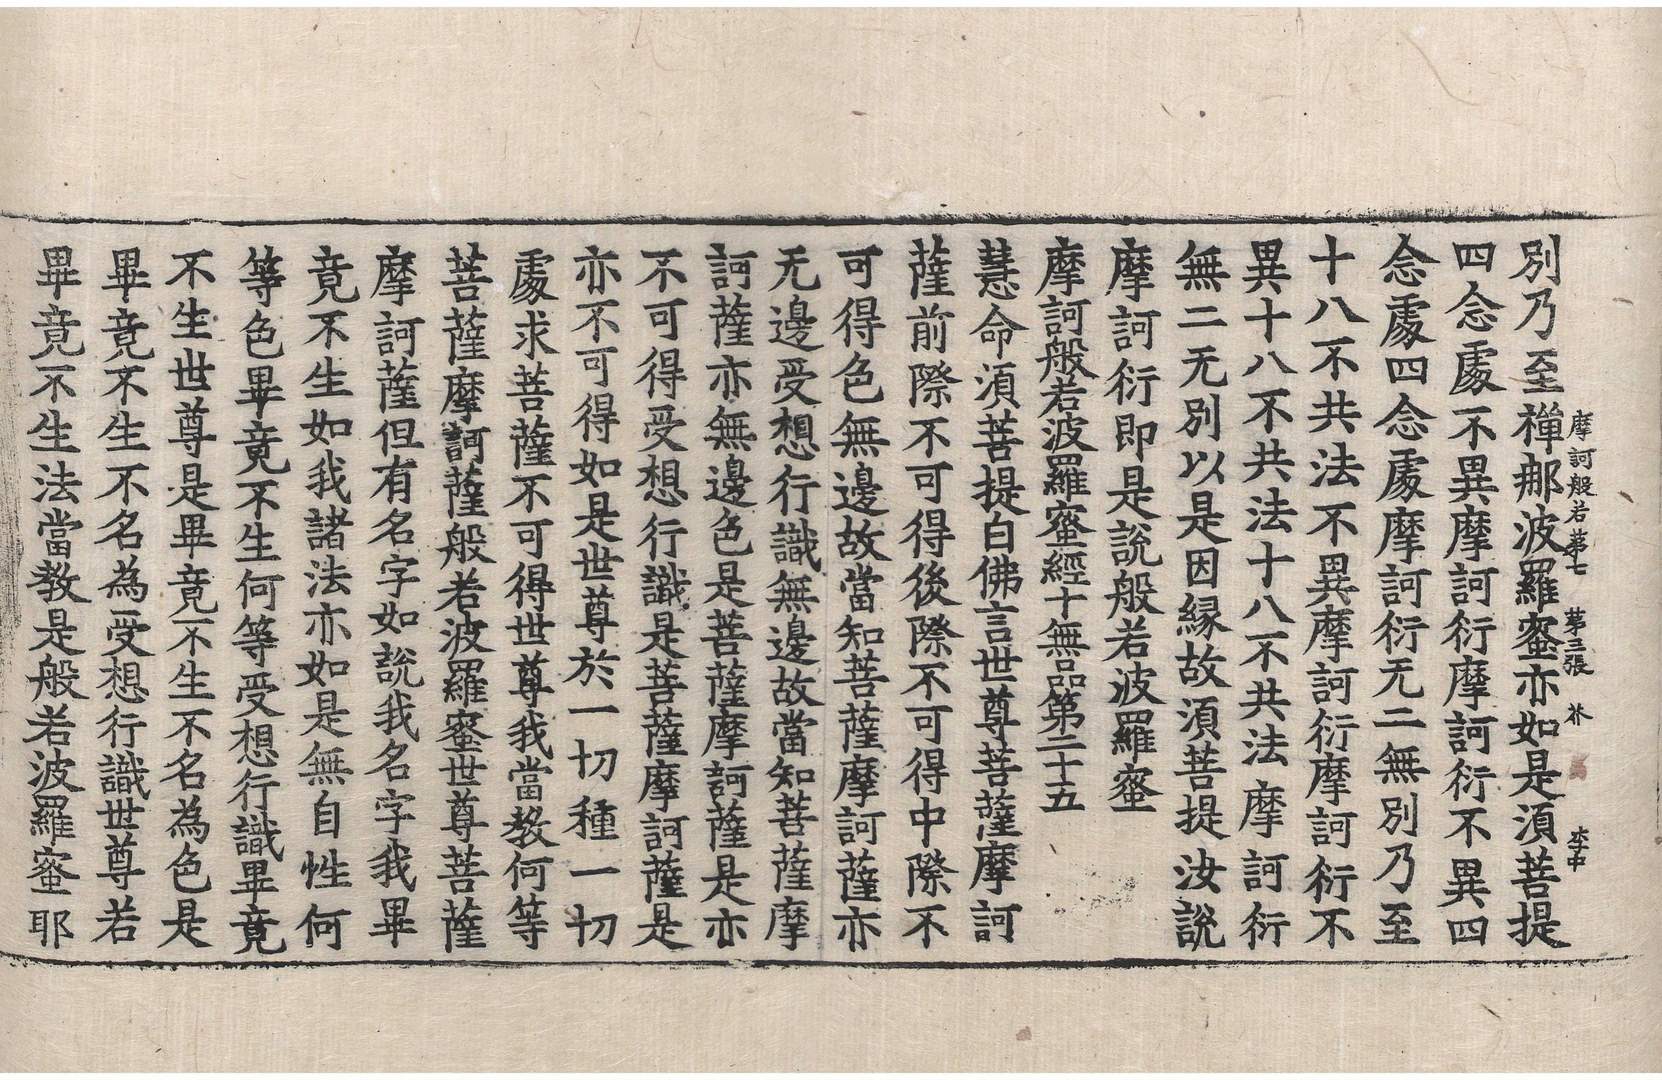 摩訶般若第七 第三張 芥 李中
別乃至禪那波羅蜜亦如是須菩提
四念處不異摩訶衍摩訶衍不異四
念處四念處摩訶衍无二無別乃至
十八不共法不異摩訶衍摩訶衍不
異十八不共法十八不共法摩訶衍
無二无別以是因緣故須菩提汝說
摩訶衍即是說般若波羅蜜
摩訶般若波羅蜜經十無品第二十五
慧命須菩提白佛言世尊菩薩摩訶
薩前際不可得後際不可得中際不
可得色無邊故當知菩薩摩訶薩亦
无邊受想行識無邊故當知菩薩摩
訶薩亦無邊色是菩薩摩訶薩是亦
不可得受想行識是菩薩摩訶薩是
亦不可得如是世尊於一切種一切
處求菩薩不可得世尊我當教何等
菩薩摩訶薩般若波羅蜜世尊菩薩
摩訶薩但有名字如說我名字我畢
竟不生如我諸法亦如是無自性何
等色畢竟不生何等受想行識畢竟
不生世尊是畢竟不生不名為色是
畢竟不生不名為受想行識世尊若
畢竟不生法當教是般若波羅蜜耶